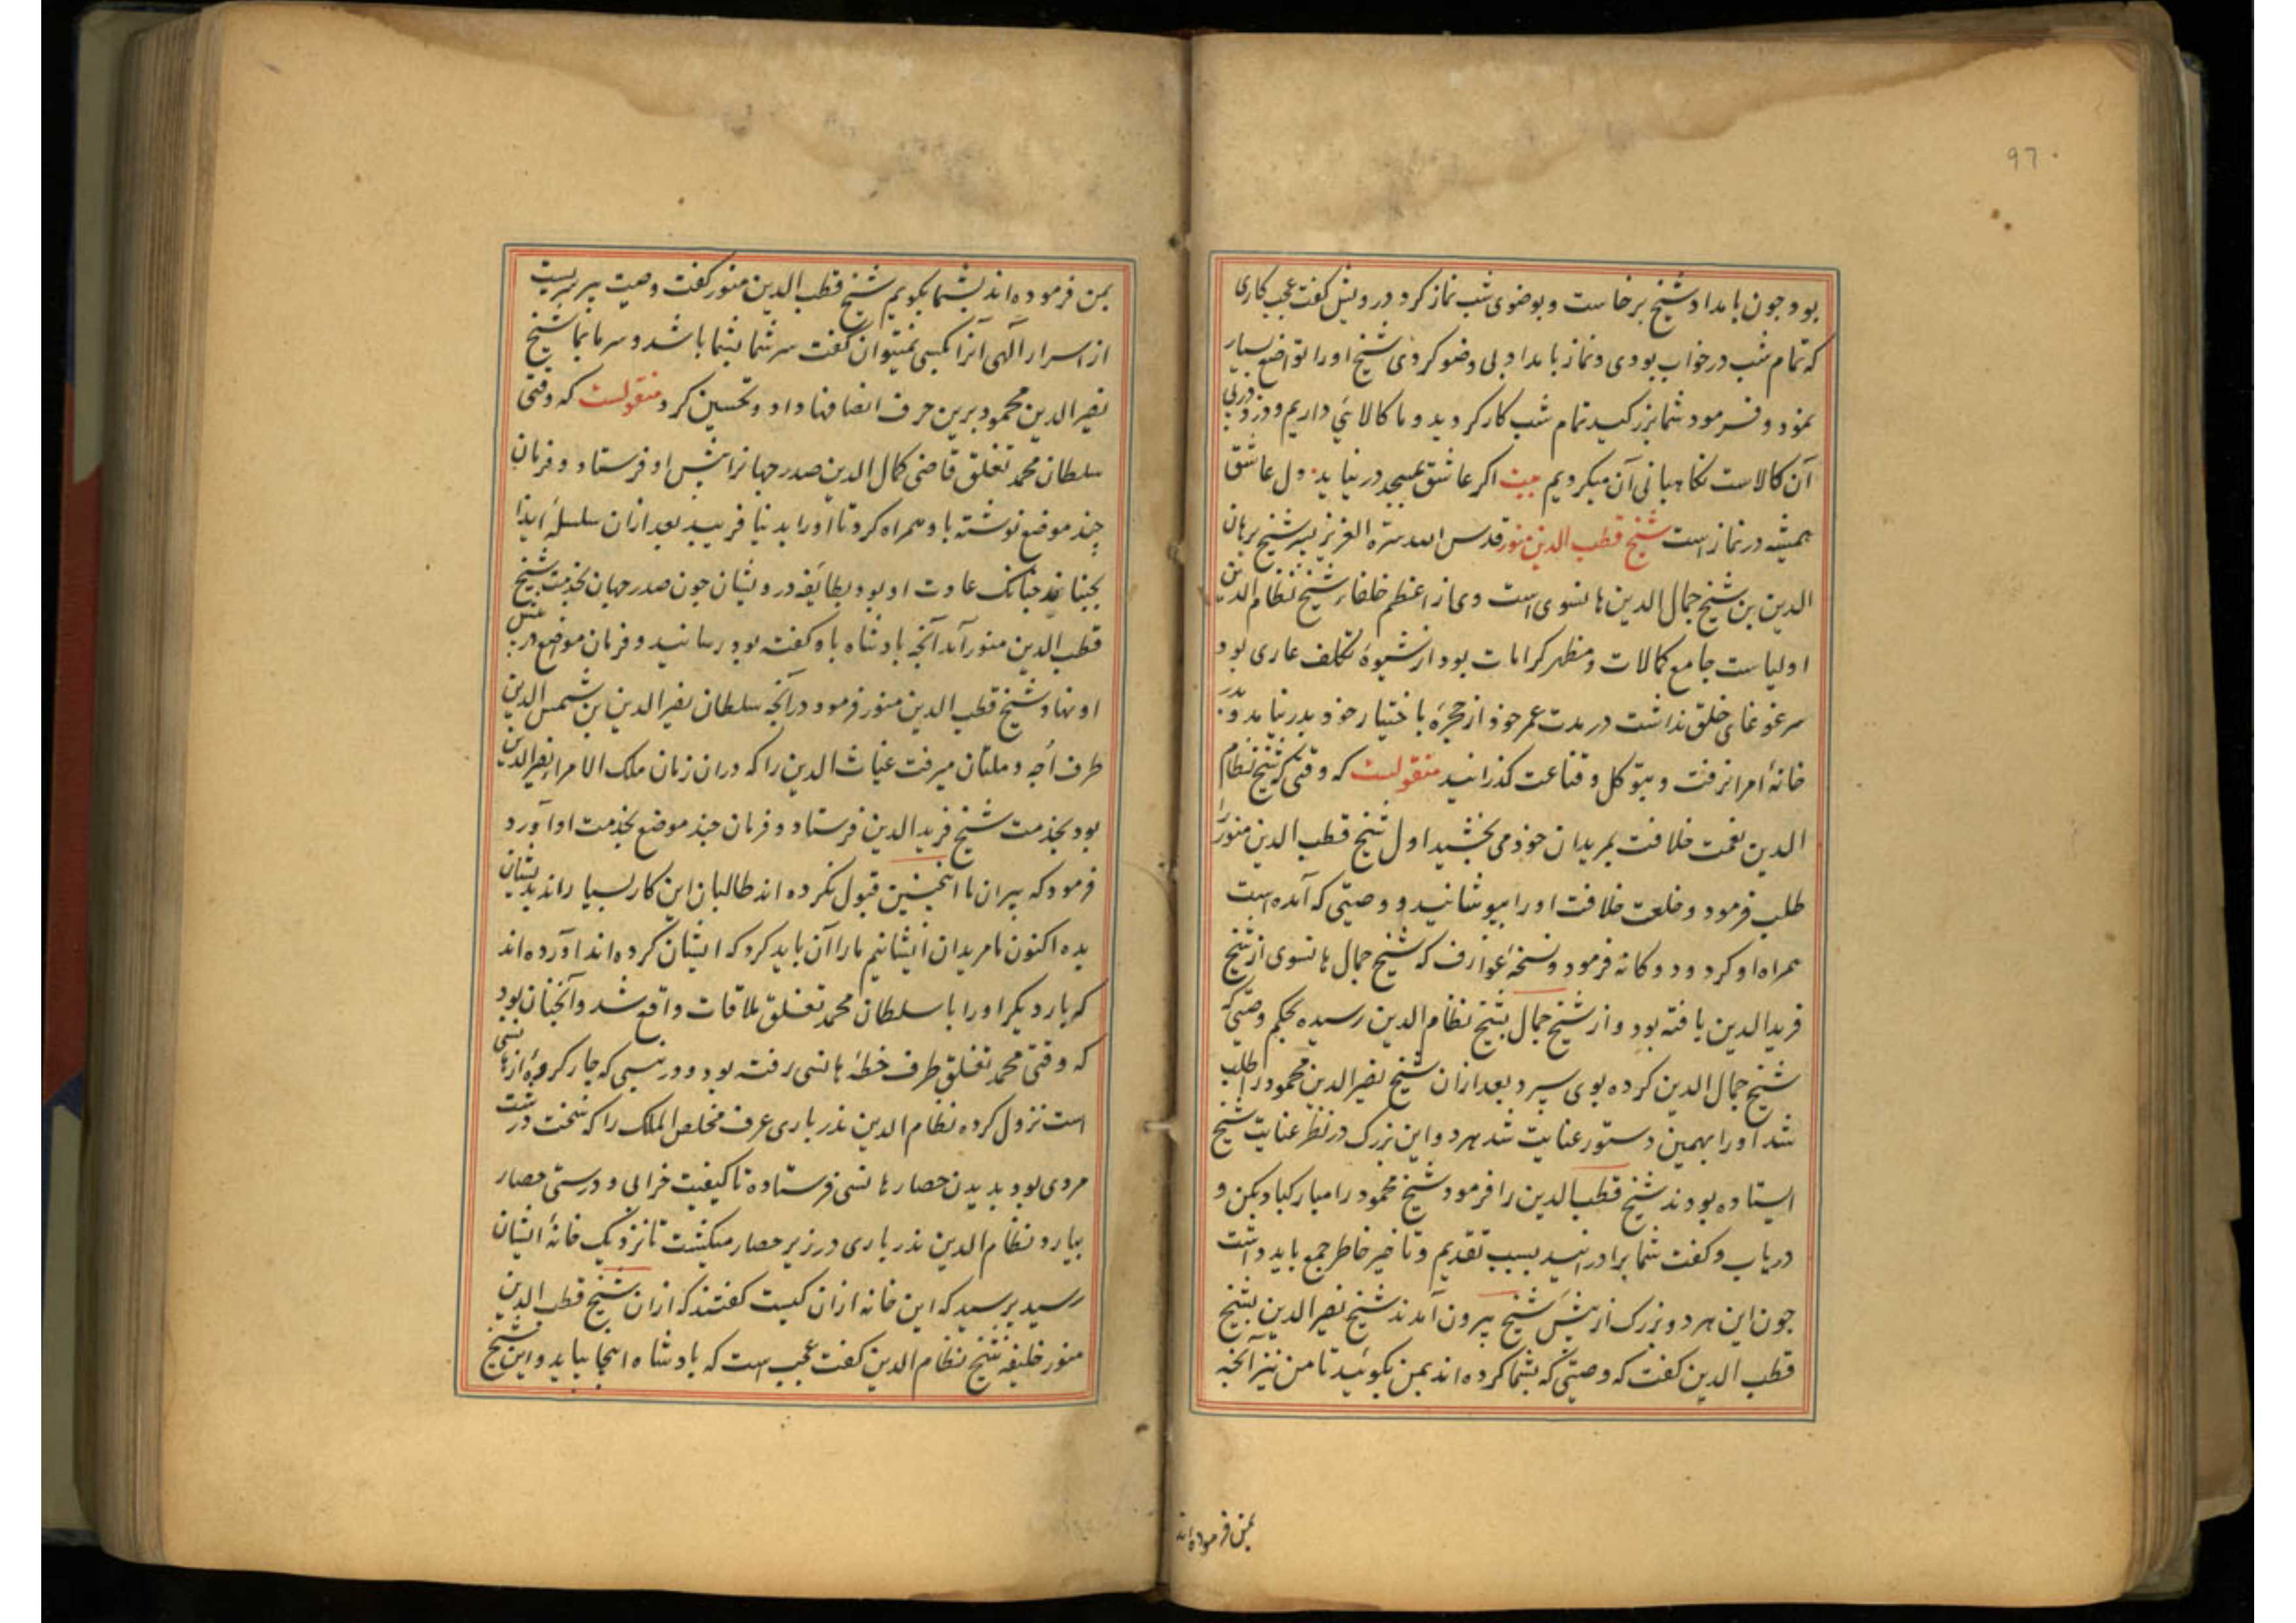 97
بود چون بامداد شیخ برخاست و بوضوی شب نماز کرد درویش گفت عجب کاری
که تمام شب در خواب بودی و نماز بامداد بی وضو کردی شیخ او را تواضع بسیار
نمود و فرمود شما بزرکید تمام شب کار کردید و ما کالائی داریم و دزد در پی
آن کالاست نکاهبانی آن میکردیم بیت اکر عاشق بمسجد در نیاید دل عاشق
همیشه در نماز است شیخ قطب الدین منور قدس الله سره العزیز پسر شیخ برهان
الدین بن شیخ جمال الدین هانسوی است وی از اعظم خلفاء شیخ نظام الدین
اولیاست جامع کمالات و مظهر کرامات بود از شیوهٔ تکلف عاری بود
سر غوغای خلق نداشت در مدت عمر خود از حجره باختیار خود بدر نیامد و بدر
خانهٔ امرا نرفت و بتوکل و قناعت کذرانید منقولست که وقتی که شیخ نظام
الدین نعمت خلافت بمریدان خود می بخشید اول شیخ قطب الدین منور را
طلب فرمود و خلعت خلافت او را پوشانید و وصیتی که آمده است
همراه او کرد و دوکانه فرمود و نسخهٔ عوارف که شیخ جمال هانسوی از شیخ
فرید الدین یافته بود و از شیخ جمال بشیخ نظام الدین رسیده بحکم وصیتی که
شیخ جمال الدین کرده بوی سپرد بعد ازان شیخ نصیر الدین محمود را طلب
شد او را بهمین دستور عنایت شد هر دو این بزرک در نظر عنایت شیخ
ایستاده بودند شیخ قطب الدین را فرمود شیخ محمود را مبارکباد بکن و
دریاب و کفت شما برادرانید بسبب تقدیم و تاخیر خاطر جمع باید داشت
چون این هر دو بزرک از پیش شیخ بیرون آمدند شیخ نصیر الدین بشیخ
قطب الدین کفت که وصیتی که بشما کرده اند بمن بکوئید تا من نیز آنچه
بمن فرموده اند
بمن فرموده اند بشما بکویم شیخ قطب الدین منور کفت وصیت پیر سریست
از اسرار الهی آنرا بکسی نمیتوان کفت سر شما بشما باشد و سر ما بما شیخ
نصیر الدین محمود برین حرف انصافها داد و تحسین کرد منقولست که وقتی
سلطان محمد تغلق قاضی کمال الدین صدر جهانرا پیش او فرستاد و فرمان
چند موضع نوشته باو همراه کرد تا او را بدنیا فریبد بعد ازان سلسلهٔ ایذا
بجنباند چنانک عادت او بود بطایفهٔ درویشان چون صدر جهان بخدمت شیخ
قطب الدین منور آمد آنچه بادشاه باو کفته بود رسانید و فرمان موضع در پیش
او نهاد شیخ قطب الدین منور فرمود در آنچه سلطان نصیر الدین بن شمس الدین
طرف اچه و ملتان میرفت غیاث الدین را که دران زمان ملک الامرا نصیر الدین
بود بخدمت شیخ فرید الدین فرستاد و فرمان چند موضع بخدمت او آورد
فرمود که پیران ما اینچنین قبول نکرده اند طالبان این کار بسیاراند بدیشان
بده اکنون ما مریدان ایشانیم ما را آن باید کرد که ایشان کرده اند آورده اند
که بار دیکر او را با سلطان محمد تغلق ملاقات واقع شد و آنچنان بود
که وقتی محمد تغلق طرف خطهٔ هانسی رفته بود و در بنسی که چار کروه از هانسی
است نزول کرده نظام الدین ندرباری عرف مخلص الملک را که سخت درشت
مردی بود بدیدن حصار هانسی فرستاده تا کیفیت خرابی و درستی حصار
بیارد نظام الدین ندرباری در زیر حصار میکشت تا نزدیک خانهٔ ایشان
رسید پرسید که این خانه ازان کیست کفتند که ازان شیخ قطب الدین
منور خلیفه شیخ نظام الدین کفت عجب است که بادشاه اینجا بیاید و این شیخ